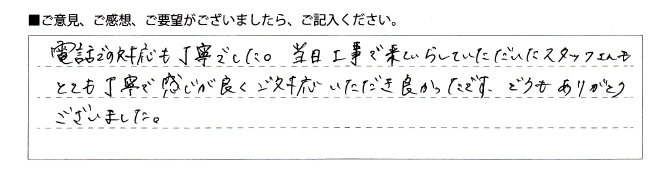 ■ご意見、ご感想、ご要望がございましたら、ご記入ください。
電話での対応も丁寧でした。当日工事で来ていらしていただいたスタッフさんも
とても丁寧で感じが良くご対応いただき良かったです、どうもありがとう
ございました。